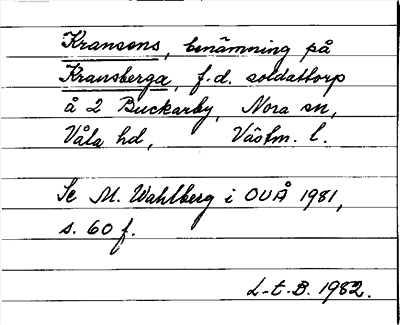 Kransens, benämning på
Kransberga, f.d. soldattorp
å 2 Buckarby, Nora sn,
Våla hd, Västm. l.
Se M. Wahlberg i OUÅ 1981,
s. 60 f.
L-t.B. 1982.